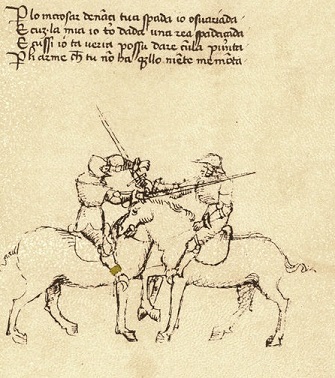 P lo incrosar denāçi tua spada io o suariada
E cū la mia io to dada una rea spadaçada
E cussi io ta veria possu dare cū la punta
P li arme ch̄ tu nō ha q̄llo niēte me mōta